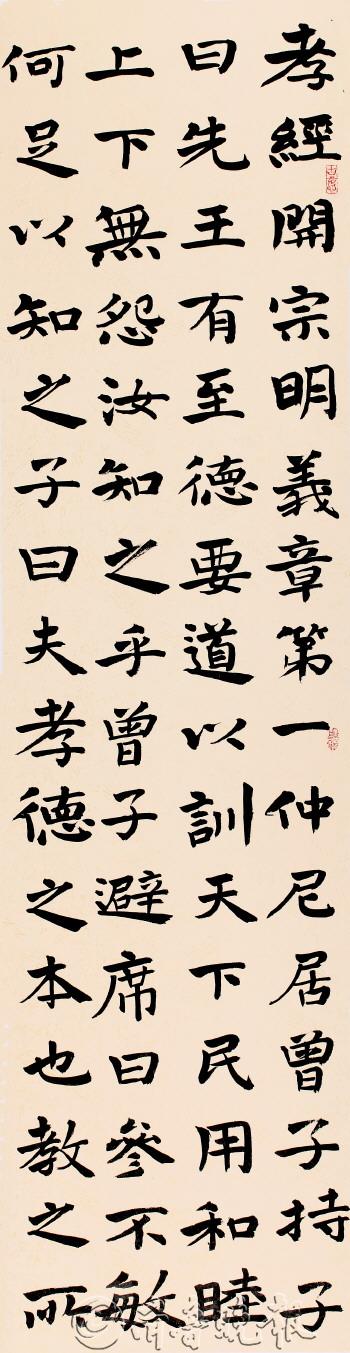 孝經開宗明義章第一仲尼居曾子持子
曰先王有至德要道以訓天下民用和睦
上下無怨汝知之乎曾子避席曰參不敏
何足以知之子曰夫孝德之本也教之所
齊魯晚報